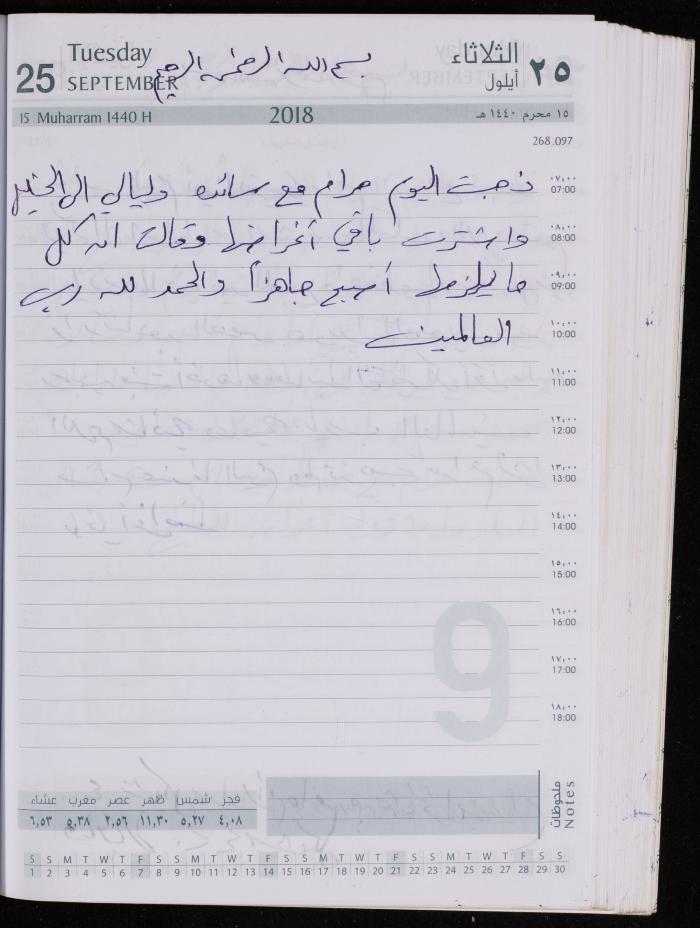 Tuesday الثلاثاء
25 SEPTEMBER بسم الله الرحمن الرحيم أيلول ٢٥
15 Muharram 1440 H 2018 ١٥ محرم ١٤٤٠ هـ
268.097
ذهبت اليوم مرام مع سائده وليالي الى الخليل
واشترت باقي أغراضها وقالت انه كل
ما يلزمها أصبح جاهزاً والحمد لله رب
العالمين
٠٧:٠٠
07:00
٠٨:٠٠
08:00
٠٩:٠٠
09:00
١٠:٠٠
10:00
١١:٠٠
11:00
١٢:٠٠
12:00
١٣:٠٠
13:00
١٤:٠٠
14:00
١٥:٠٠
15:00
١٦:٠٠
16:00
١٧:٠٠
17:00
١٨:٠٠
18:00
9
ملحوظات
Notes
فجر شمس ظهر عصر مغرب عشاء
٤,٠٨ ٥,٢٧ ١١,٣٠ ٢,٥٦ ٥,٣٨ ٦,٥٣
S S M T W T F S S M T W T F S S M T W T F S S M T W T F S S
1 2 3 4 5 6 7 8 9 10 11 12 13 14 15 16 17 18 19 20 21 22 23 24 25 26 27 28 29 30